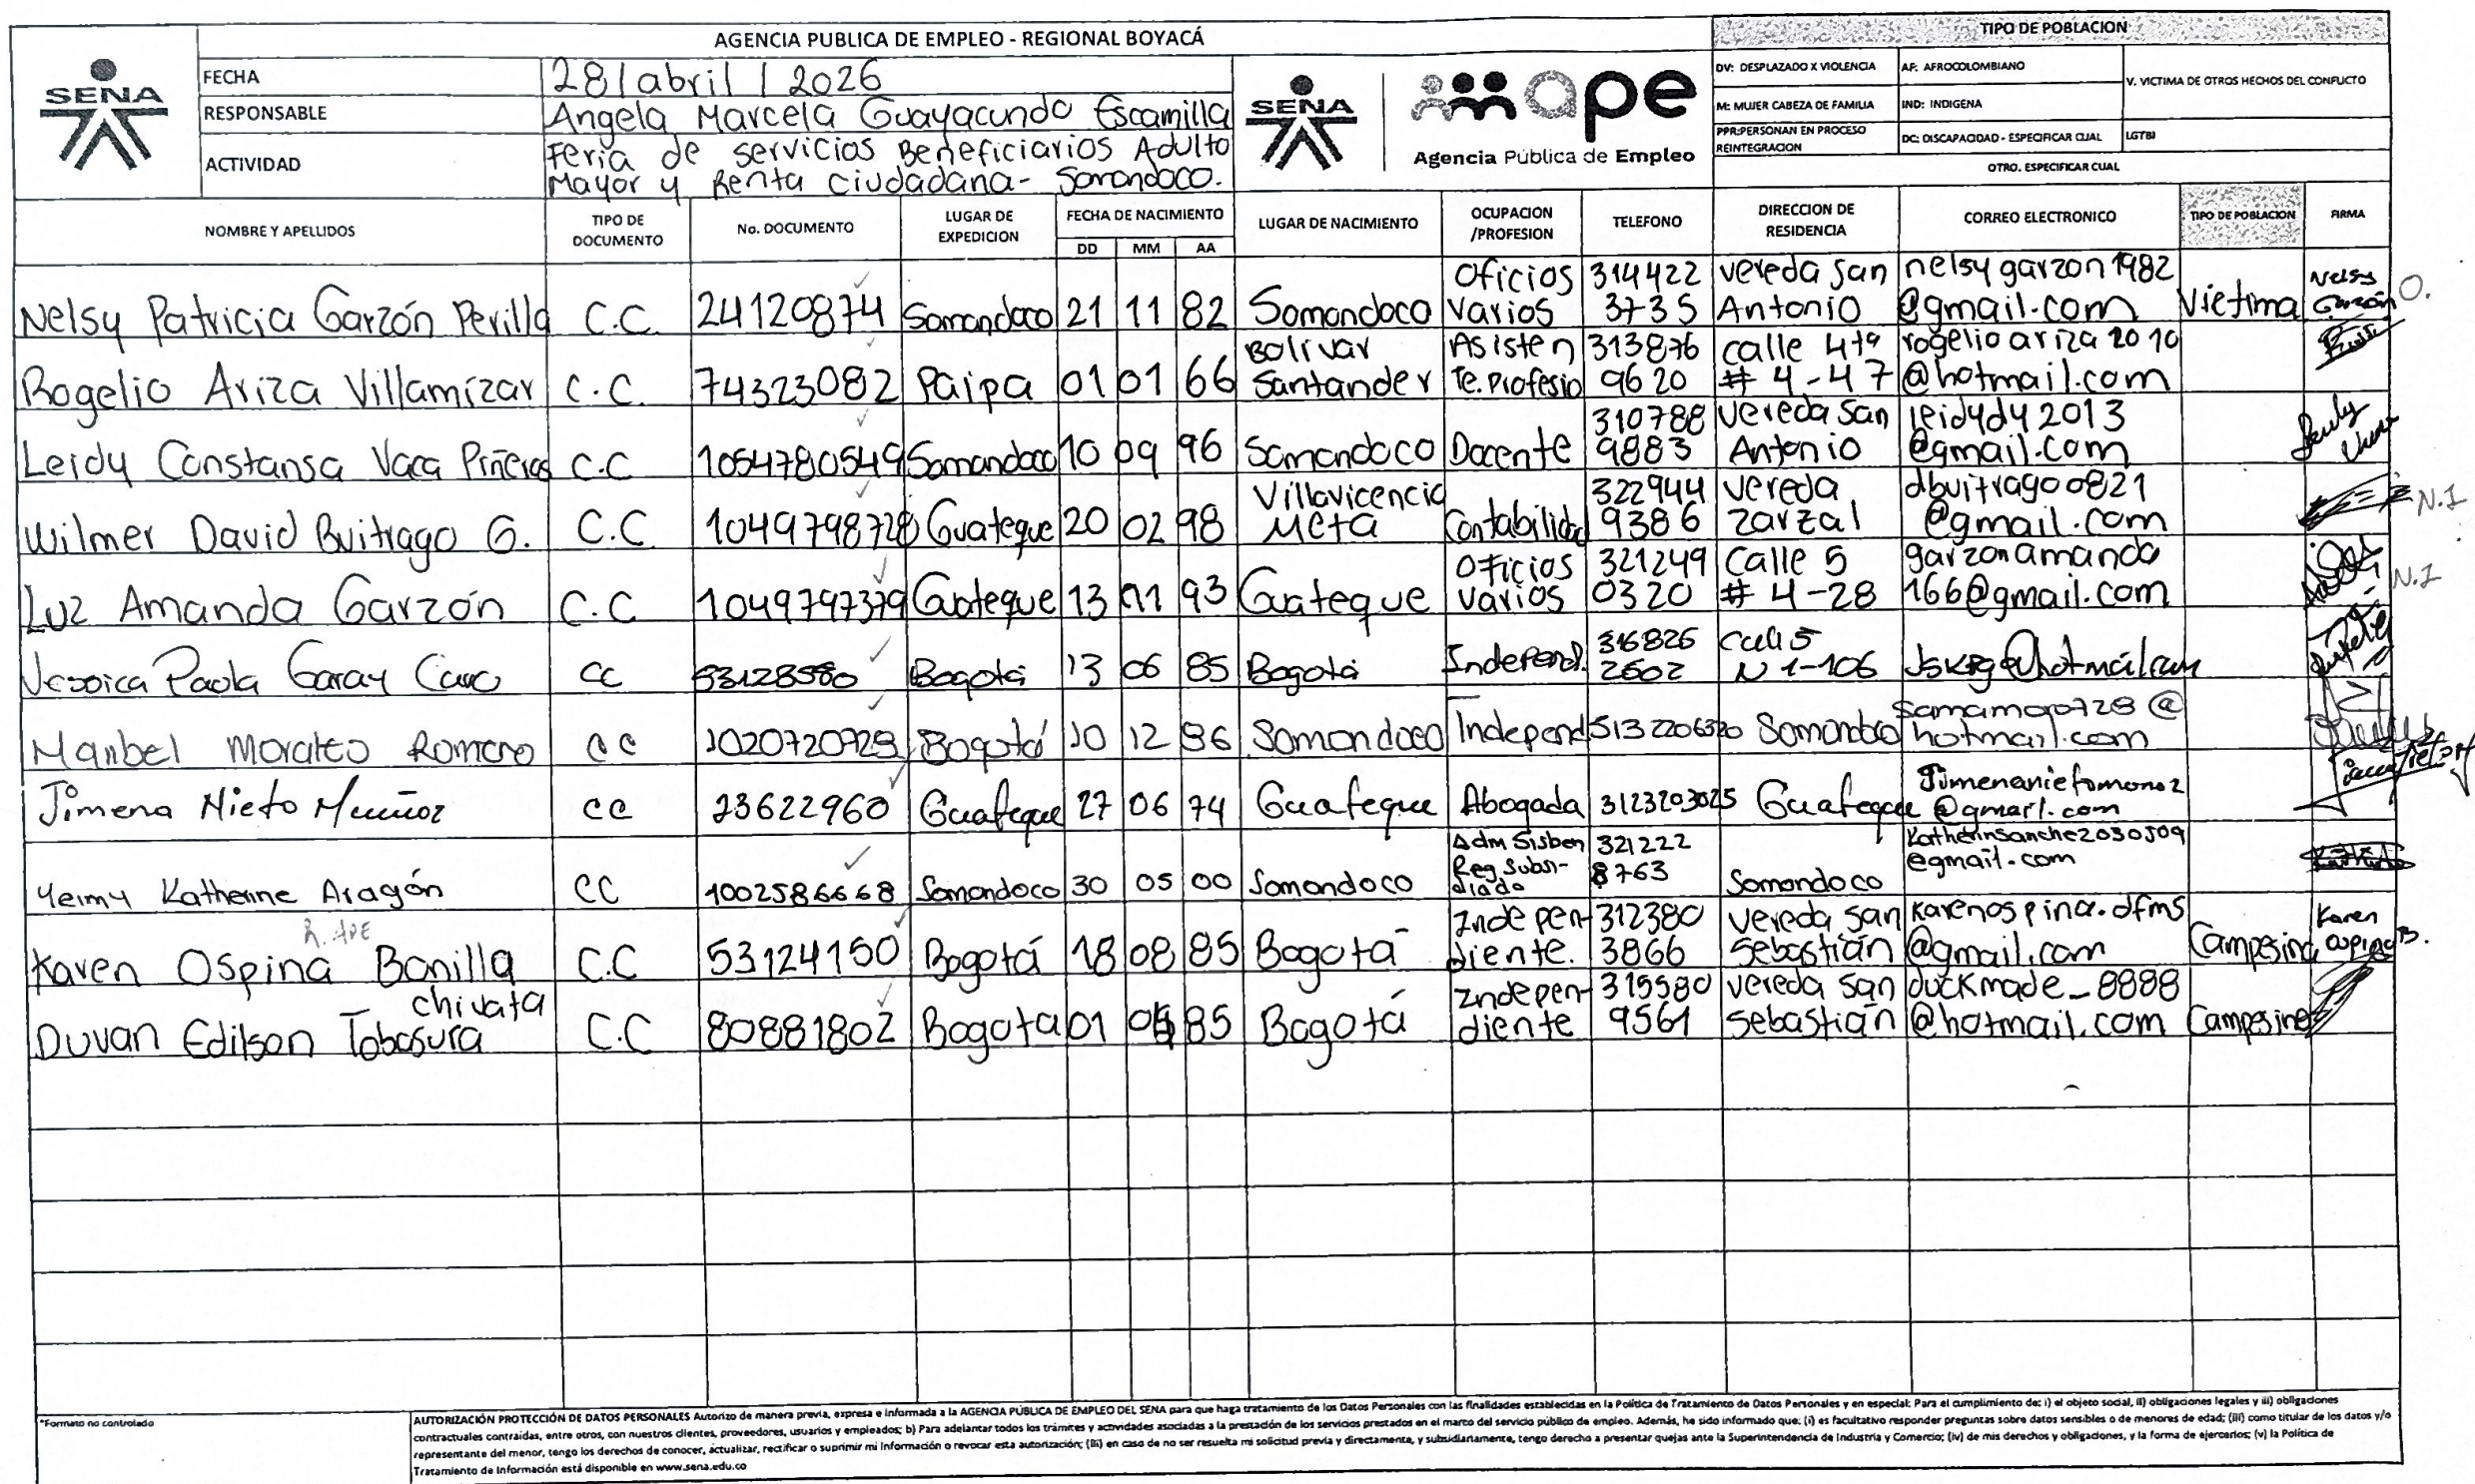 AGENCIA PUBLICA DE EMPLEO - REGIONAL BOYACÁ
TIPO DE POBLACION
SENA
FECHA 28/abril/2026
RESPONSABLE Angela Marcela Guayacundo Escamilla
ACTIVIDAD Feria de servicios Beneficiarios Adulto
Mayor y Renta Ciudadana- Somondoco.
SENA
ape
Agencia Pública de Empleo
DV: DESPLAZADO X VIOLENCIA AF: AFROCOLOMBIANO V. VICTIMA DE OTROS HECHOS DEL CONFLICTO
M: MUJER CABEZA DE FAMILIA IND: INDIGENA
PPR:PERSONAN EN PROCESO REINTEGRACION DC: DISCAPACIDAD - ESPECIFICAR CUAL LGTBI
OTRO. ESPECIFICAR CUAL
NOMBRE Y APELLIDOS TIPO DE DOCUMENTO No. DOCUMENTO LUGAR DE EXPEDICION FECHA DE NACIMIENTO LUGAR DE NACIMIENTO OCUPACION /PROFESION TELEFONO DIRECCION DE RESIDENCIA CORREO ELECTRONICO TIPO DE POBLACION FIRMA
DD MM AA
Nelsy Patricia Garzón Perilla C.C. 24120874 Somondoco 21 11 82 Somondoco Oficios Varios 314422 3735 vereda San Antonio nelsygarzon1982 @gmail.com Victima Nelsy Garzón O.
Rogelio Ariza Villamizar C.C. 74323082 Paipa 01 01 66 Bolivar Santander Asisten Te.Profesio 313876 9620 calle 4ta # 4-47 rogelioariza2010 @hotmail.com
Leidy Constansa Vaca Piñeros C.C 1054780549 Somondoco 10 09 96 Somondoco Docente 310788 9883 vereda San Antonio leidydy2013 @gmail.com
Wilmer David Buitrago G. C.C 1049798728 Guateque 20 02 98 Villavicencio Meta Contabilidad 322944 9386 vereda zarzal dbuitrago0821 @gmail.com N.I
Luz Amanda Garzón C.C 1049797379 Guateque 13 11 93 Guateque Oficios varios 321249 0320 Calle 5 # 4-28 garzonamanda 166@gmail.com N.I
Jessica Paola Garay Caro CC 53128580 Bogotá 13 06 85 Bogotá Independ. 316826 2602 Call 5 N 1-106
Maribel Morales Romero CC 1020720729 Bogotá 10 12 86 Somondoco Independ Somondoco hotmail.com
Jimena Nieto Muñoz CC 23622960 Guateque 27 06 74 Guateque Abogada 3123203025 Guateque @gmail.com
Yeimy Katherine Aragón CC 1002586668 Somondoco 30 05 00 Somondoco Adm Sisben Reg Subsidiado 321222 8763 Somondoco Katherinsanche2030509 @gmail.com
R. APE
Karen Ospina Bonilla C.C 53124150 Bogotá 18 08 85 Bogotá Indepen- diente. 312380 3866 vereda San Sebastián karenospina.dfms @gmail.com Campesina Karen OspinaB.
Duvan Edilson Tobasura chivata C.C 80881802 Bogota 01 85 Bogotá Indepen- diente 315580 9561 vereda San Sebastián duckmade_8888 @hotmail.com Campesino
*Formato no controlado
AUTORIZACIÓN PROTECCIÓN DE DATOS PERSONALES Autorizo de manera previa, expresa e informada a la AGENCIA PÚBLICA DE EMPLEO DEL SENA para que haga tratamiento de los Datos Personales con las finalidades establecidas en la Política de Tratamiento de Datos Personales y en especial: Para el cumplimiento de: i) el objeto social, ii) obligaciones legales y iii) obligaciones
contractuales contraídas, entre otros, con nuestros clientes, proveedores, usuarios y empleados; b) Para adelantar todos los trámites y actividades asociadas a la prestación de los servicios prestados en el marco del servicio público de empleo. Además, he sido informado que: (i) es facultativo responder preguntas sobre datos sensibles o de menores de edad; (iii) como titular de los datos y/o
representante del menor, tengo los derechos de conocer, actualizar, rectificar o suprimir mi información o revocar esta autorización; (iii) en caso de no ser resuelta mi solicitud previa y directamente, y subsidiariamente, tengo derecho a presentar quejas ante la Superintendencia de Industria y Comercio; (iv) de mis derechos y obligaciones, y la forma de ejercerlos; (v) la Política de
Tratamiento de Información está disponible en www.sena.edu.co